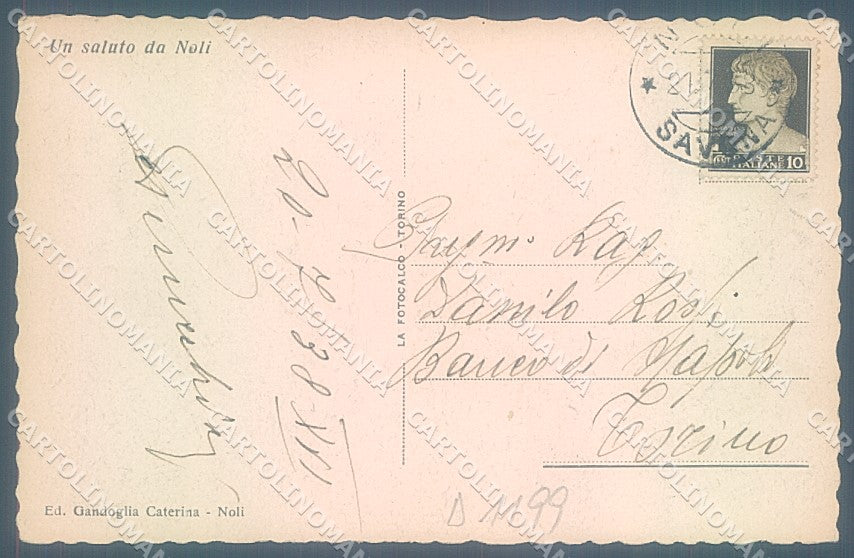 Un saluto da Noli
SAVONA
POSTE
ITALIANE 10
20-7-38-XVI
LA FOTOCALCO - TORINO
Rag.
Danilo Rossi
Banco di Napoli
Torino
Ed. Gandoglia Caterina - Noli
D 1199
CARTOLINOMANIA